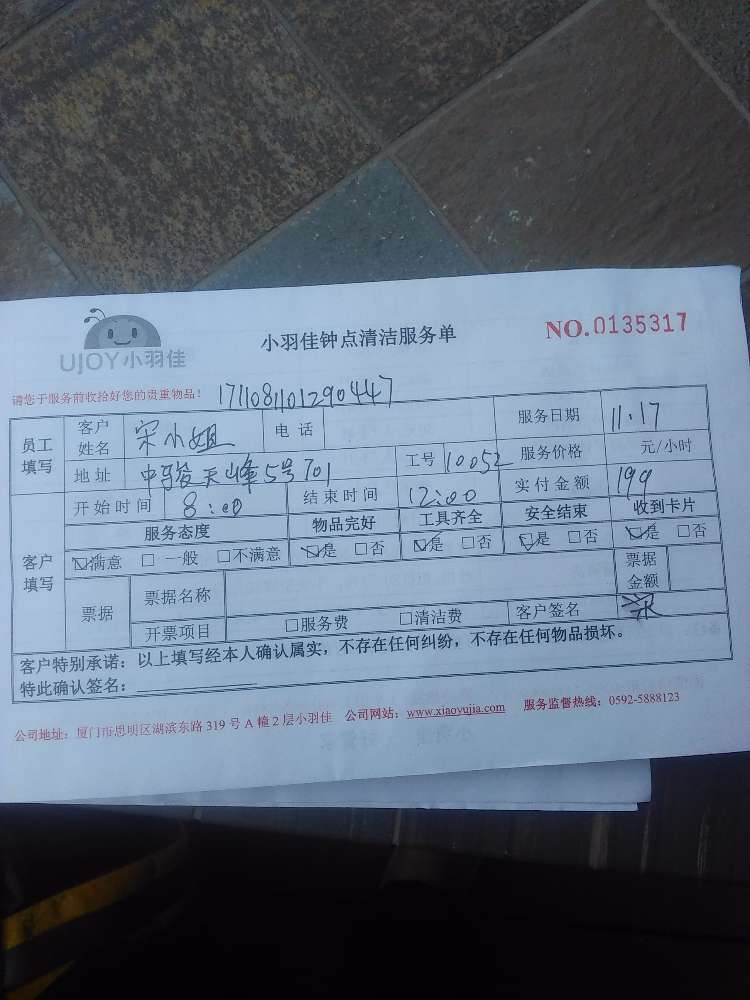 UJOY小羽佳
小羽佳钟点清洁服务单
NO.0135317
请您于服务前收拾好您的贵重物品！ 1711081101290447
员工填写 客户姓名 宋小姐 电话 服务日期 11.17
地址 中骏天峰5号701 工号 10052 服务价格 元/小时
客户填写 开始时间 8:00 结束时间 12:00 实付金额 199
服务态度 物品完好 工具齐全 安全结束 收到卡片
☑满意 □一般 □不满意 ☑是 □否 ☑是 □否 ☑是 □否 ☑是 □否
票据 票据名称 票据金额
开票项目 □服务费 □清洁费 客户签名
客户特别承诺：以上填写经本人确认属实，不存在任何纠纷，不存在任何物品损坏。
特此确认签名：
公司地址：厦门市思明区湖滨东路319号A幢2层小羽佳 公司网站：www.xiaoyujia.com 服务监督热线：0592-5888123